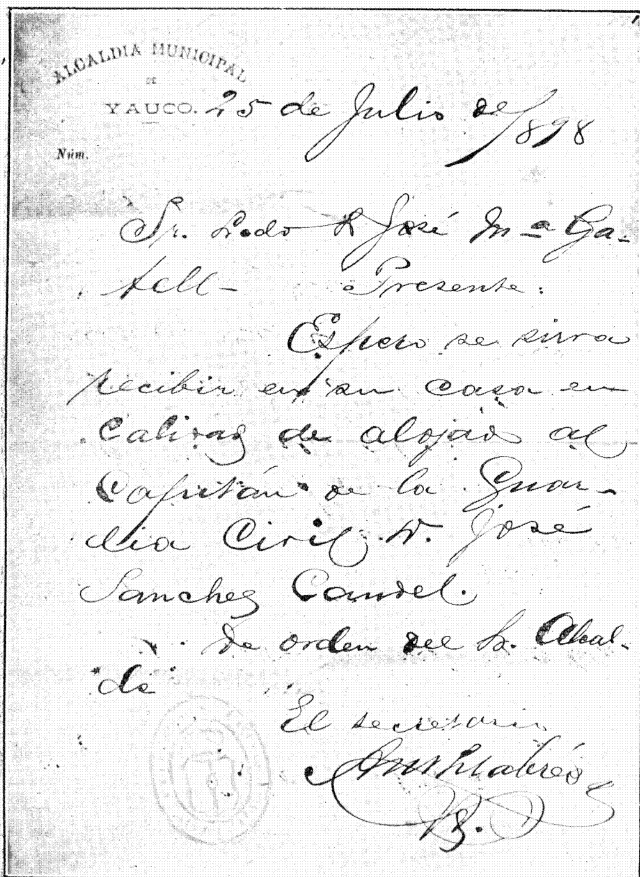 ALCALDIA MUNICIPAL
DE
YAUCO. 25 de Julio de 1898
Núm.
Sr. Ledo D José Mª Ga-
tell- Presente:
Espero se sirva
recibir en su casa en
calidad de alojado al
Capitán de la Guar-
dia Civil D. José
Sanchez Candel.
De orden del Sr. Alcal-
de
El secretario